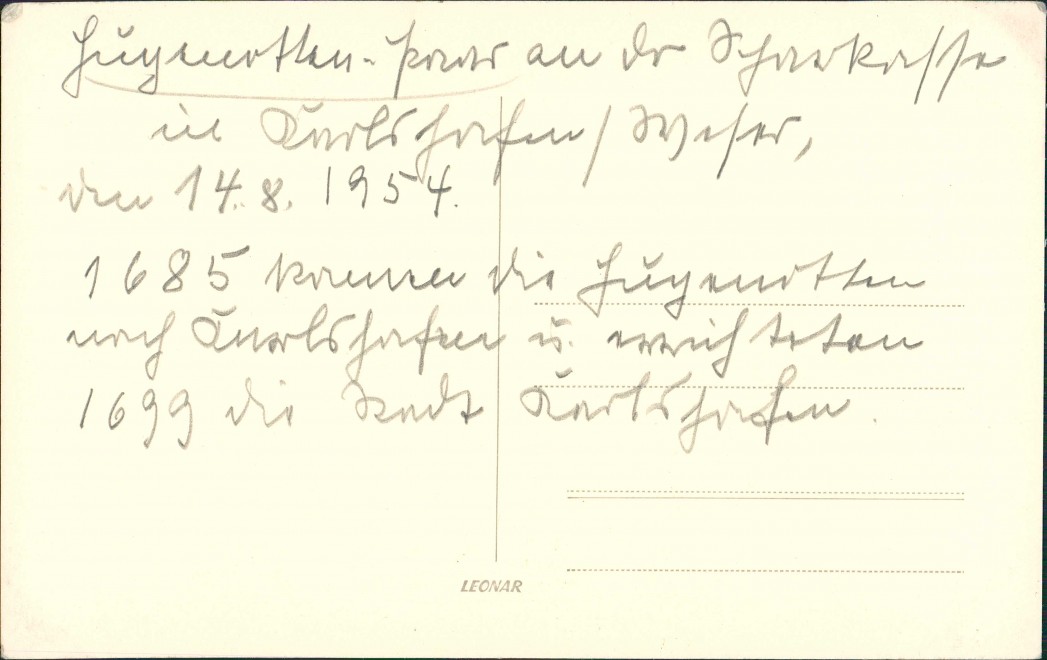 Hugenotten-Paar an der Sparkasse
in Karlshafen / Weser,
den 14.8. 1954.
1685 kamen die Hugenotten
nach Karlshafen u. errichteten
1699 die Stadt Karlshafen.
LEONAR